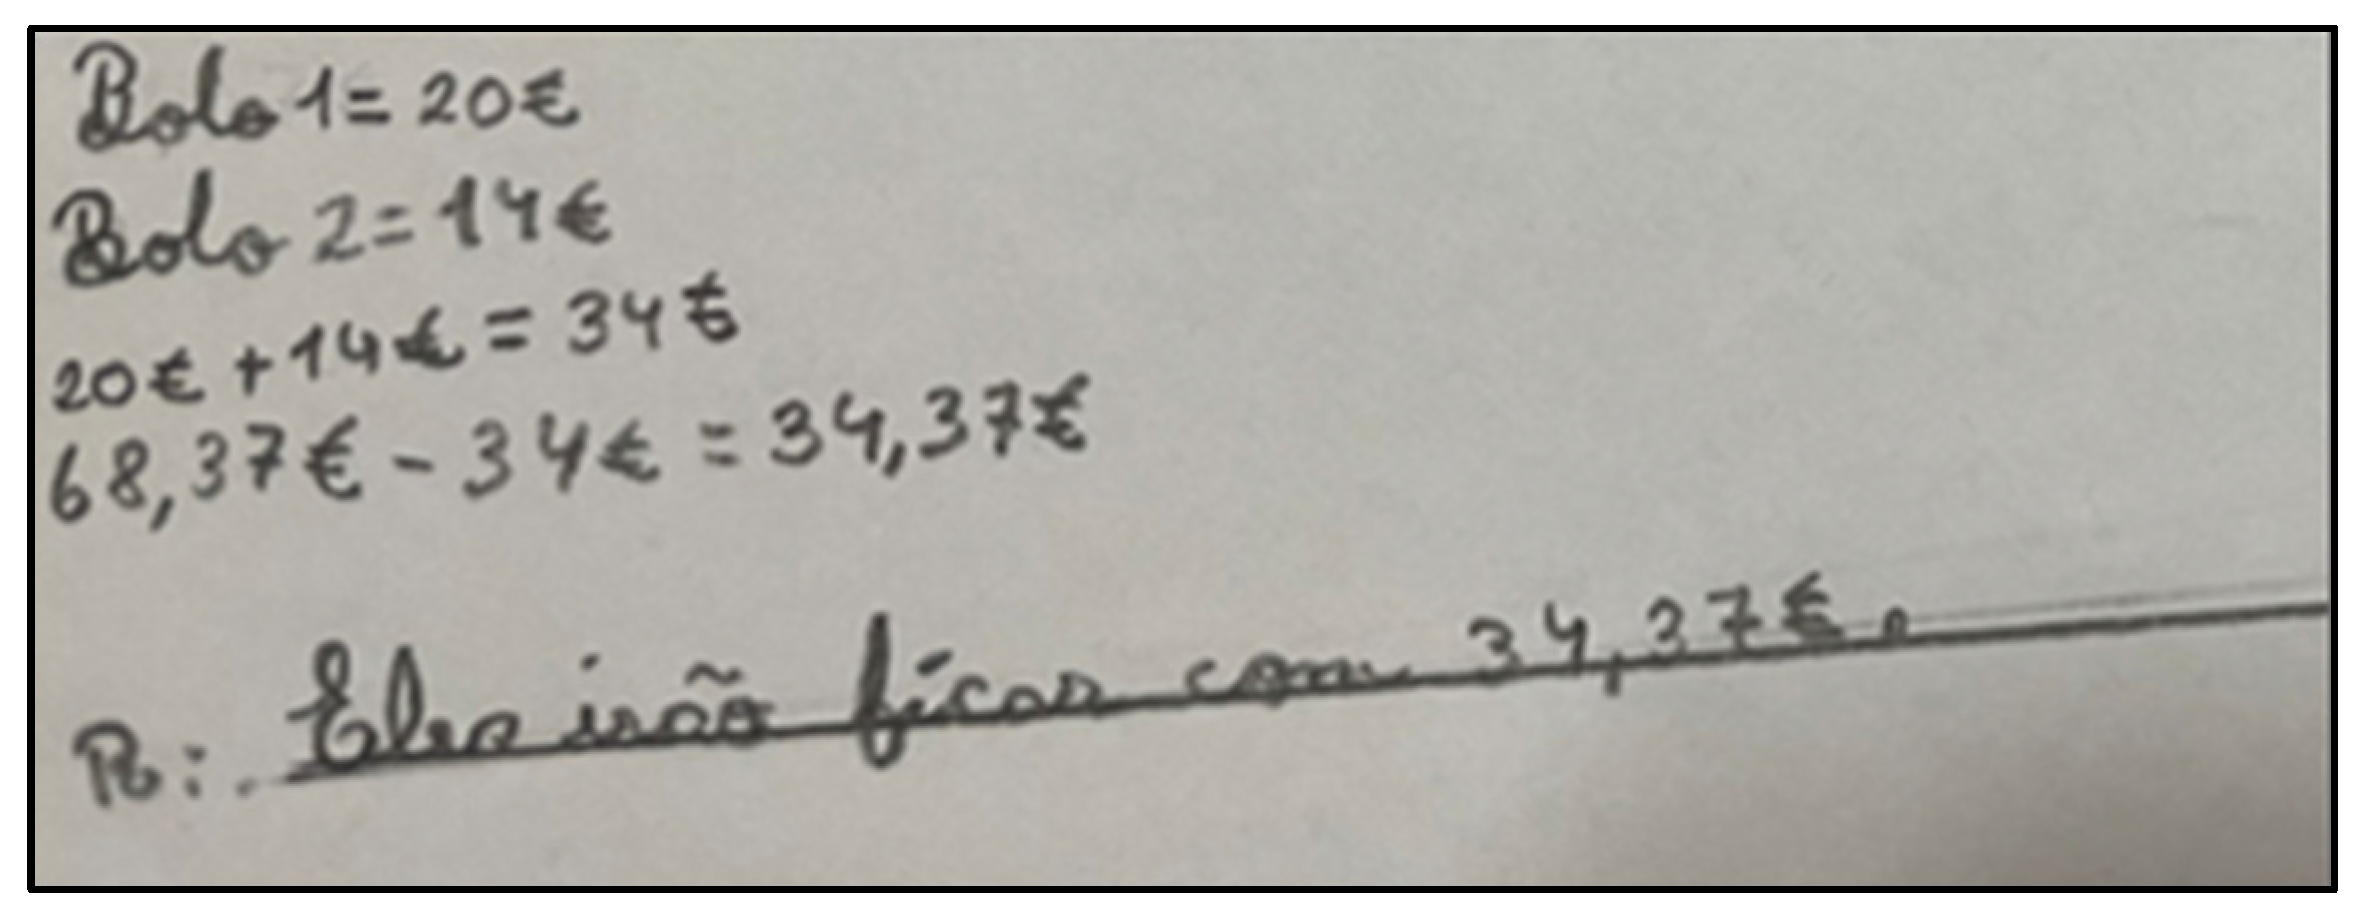 Bolo 1= 20€
Bolo 2= 14€
20€ + 14€ = 34€
68,37€ - 34€ = 34,37€
R: Eles irão ficar com 34,37€.